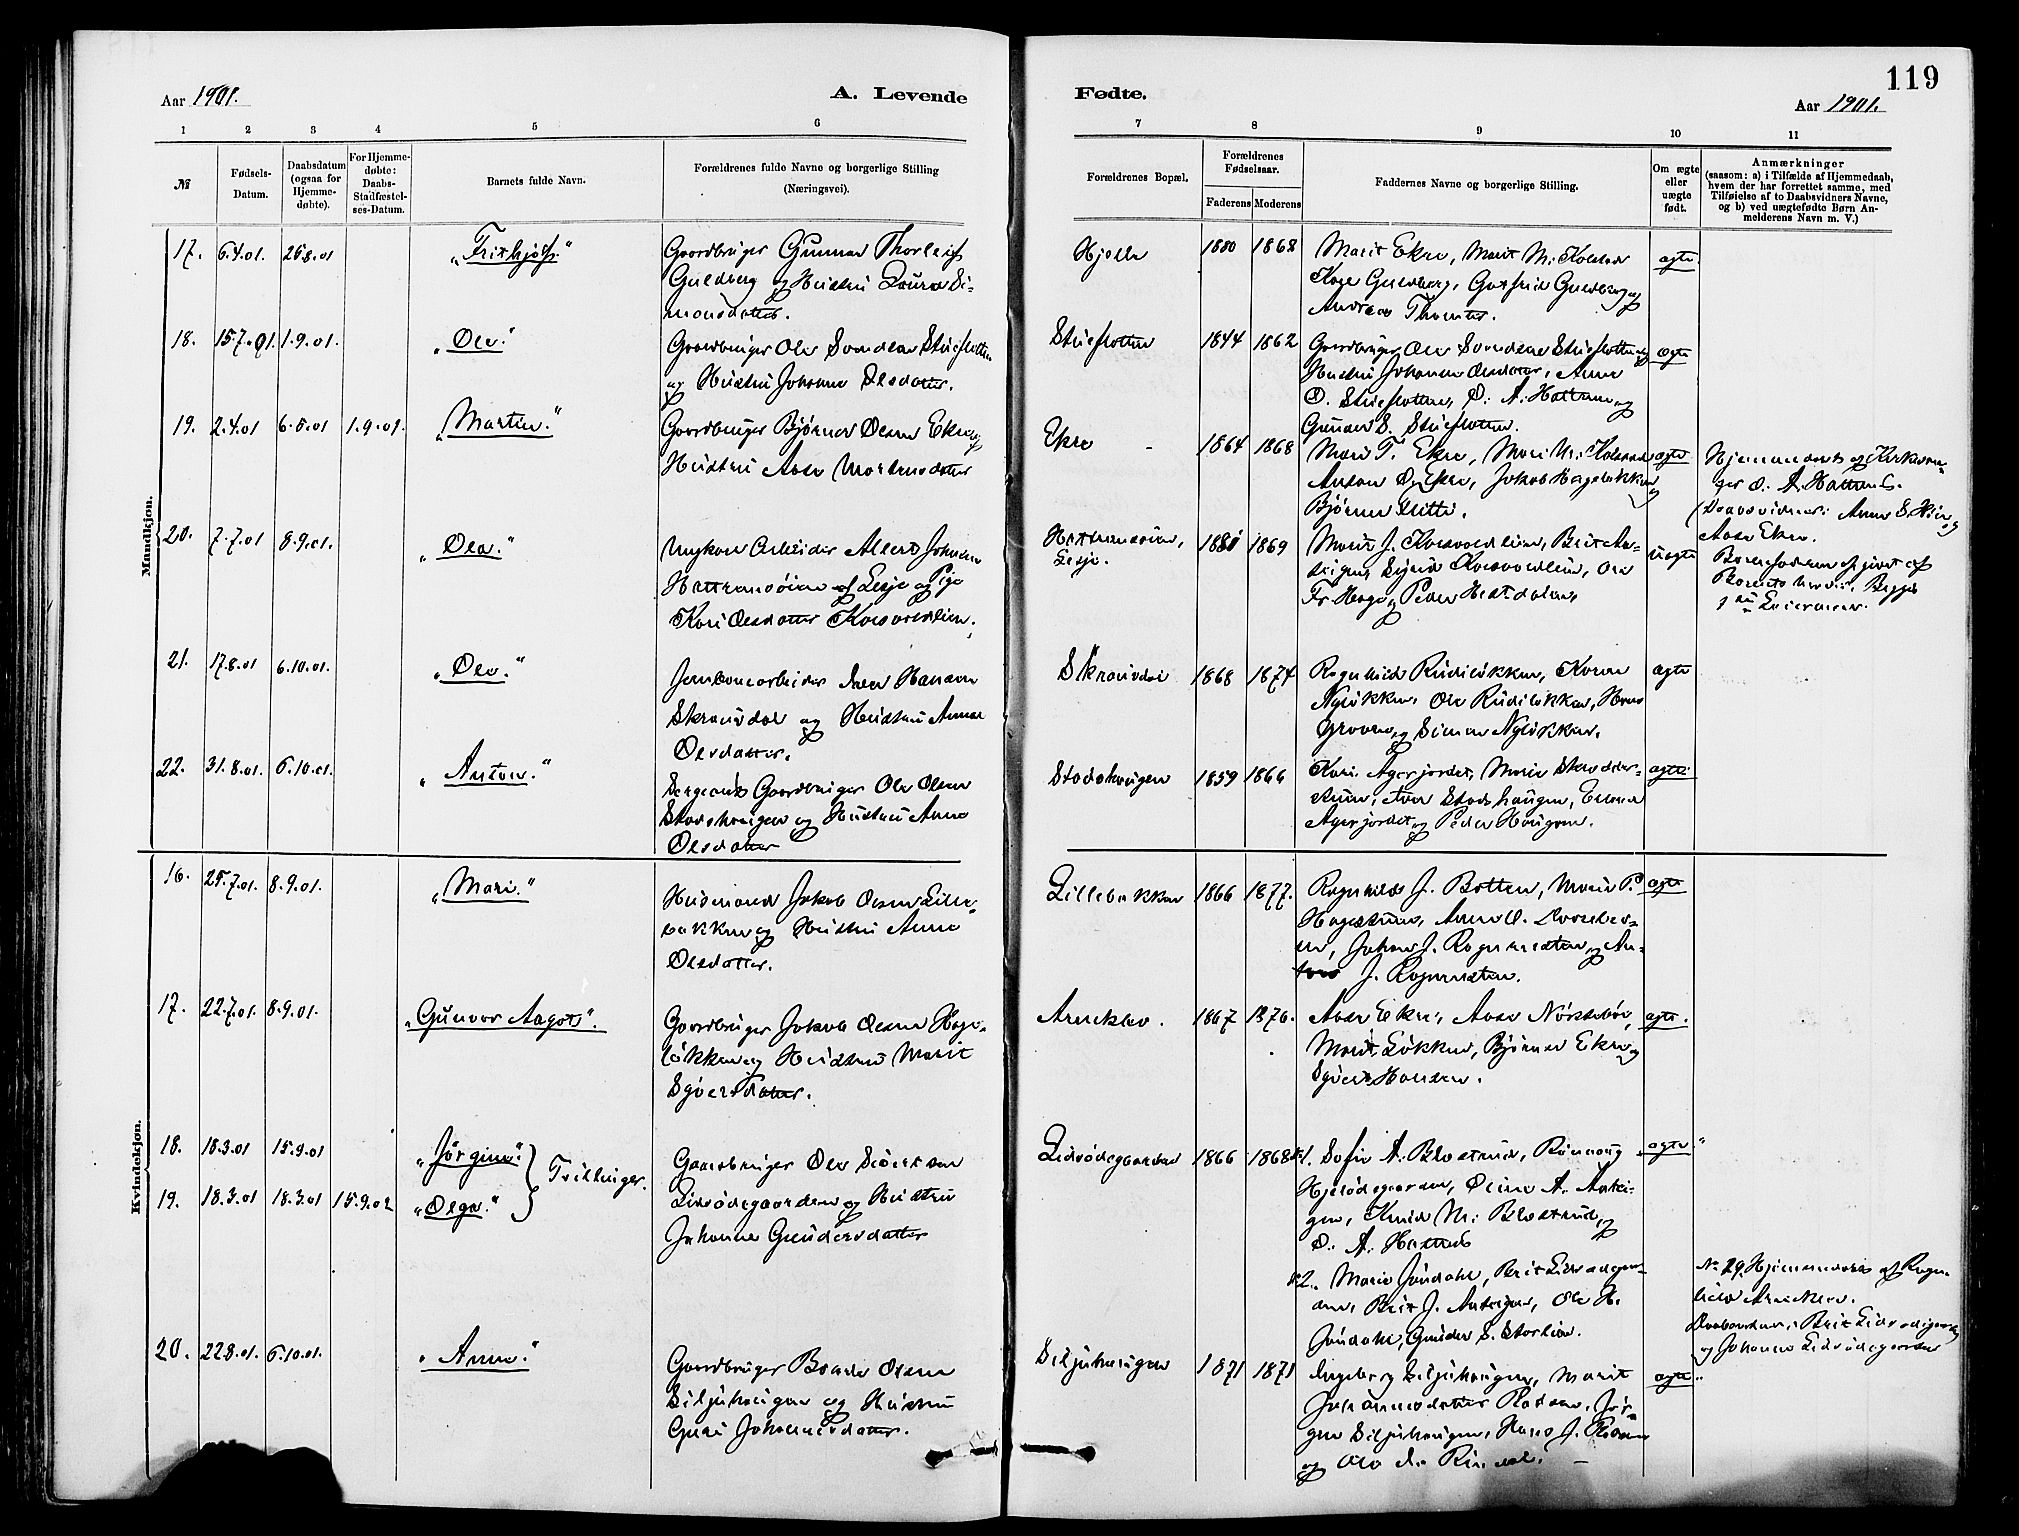 119
Aar 1901.
A. Levende
Fødte.
Aar 1901.
1 2 3 4 5 6 7 8 9 10 11
№
Fødsels-
Datum.
Daabsdatum
(ogsaa for
Hjemme-
døbte).
For Hjemme-
døbte:
Daabs-
Stadfæstel-
ses-Datum.
Barnets fulde Navn.
Forældrenes fulde Navne og borgerlige Stilling
(Næringsvei).
Forældrenes Bopæl.
Forældrenes
Fødselsaar.
Faderens Moderens
Faddernes Navne og borgerlige Stilling.
Om ægte
eller
uægte
født.
Anmærkninger
(saasom: a) i Tilfælde af Hjemmedaab,
hvem der har forrettet samme, med
Tilføielse af to Daabsvidners Navne,
og b) ved uægtefødte Børn An-
melderens Navn m. V.)
Mandkjøn.
17. 6.4.01. 26.8.01 „Frithjof.“
Gaardbruger Gunnar Thorleif
Guldberg og Hustru Laura Si-
monsdatter.
Hjelle 1880 1868
Marit Ekre, Marit M. Kolstad
Kari Guldberg, Gotfred Guldberg og
Andreas Thomter.
ægte
18. 15.7.01. 1.9.01. „Ole.“
Gaardbruger Ole Svendsen Stueflotten
og Hustru Johanne Olsdatter.
Stueflotten 1844 1862
Gaardbruger Ole Svendsen Stueflotten og
Hustru Johanne Olsdatter, Anne
O. Stueflotten, O. A. Hattrem og
Gunder S. Stueflotten.
ægte
19. 2.4.01 6.5.01 1.9.01. „Martin.“
Gaardbruger Bjørner Olsen Ekre og
Hustru Aase Mortensdatter
Ekre - 1864 1868
Mari T. Ekre, Mari M. Kolstad
Anton O. Ekre, Jakob Hageløkken og
Bjørner Slitti.
ægte
Hjemmedøbt af Kirkesan-
ger O. A. Hattrem.
(Daabsvidner: Anne S. og
Aase Ekre.
20. 7.7.01 8.9.01. „Ola.“
Ungkar Arbeider Albert Johnsen
Hattremsøien af Lesje og Pige
Kari Olsdatter Korsvoldlien.
Hattremsøien,
Lesje. 1881 1869
Marit J. Korsvoldlien, Brit An-
Sigrid Korsvoldlien, Ole
Fr. Hage og Peder
uægte
Barnefaderen opgivet af
Barnets Moder. Begges
1ste Leiermaal.
21. 17.8.01 6.10.01. „Ole.“
Jernbanearbeider Iver Hansen
Skrausdal og Hustru Anne
Olsdatter.
Skrausdal 1868 1874
Ragnhild Rudiløkken, Karen
Nyløkken, Ole Rudiløkken, Hans
Groven og Simen Nyløkken.
ægte
22. 31.8.01. 6.10.01. „Anton.“
Sergeant Gaardbruger Ole Olsen
Stadshaugen og Hustru Anne
Olsdatter
Stadshaugen 1859 1866
Kari Agerjordet, Marie
Iver Stadshaugen,
Agerjordet og Peder Haugen.
ægte
Kvindekjøn.
16. 25.7.01. 8.9.01. „Mari.“
Husmand Jakob Olsen Lille-
bakken og Hustru Anne
Olsdatter.
Lillebakken 1866 1877.
Ragnhild J. Botten, Marie P.
Hagestuen, Anne O.
Johan J. Rognersten og An-
ton J. Rognersten.
ægte
17. 22.7.01. 8.9.01. „Gunvor Aagot“.
Gaardbruger Jakob Olsen Hage-
løkken og Hustru Marit
Syversdatter.
Arneklev. 1867 1876.
Aase Ekre, Aase Nørstebø,
Marit Løkken, Bjørner Ekre og
Syver Hansen.
ægte.
18. 18.3.01 15.9.01 „Jørgine.“ } Tvillinger.
19. 18.3.01 18.3.01 15.9.01 „Olga.“
Gaardbruger Ole Siversen
Lidsødegaarden og Hustru
Johanne Gundersdatter
Lidsødegaarden 1866 1868
№ 1. Sofie A. Blostrud, Rønnaug
Hjelsødegaarden, Oline A.
Knud M. Blostrud og
O. A. Hattrem
№ 2. Marie Jøndahl, Brit Lidsødegaar-
den, Brit J. Ole H.
Jøndahl, Gunder S. Storlien.
ægte „
№ 19. Hjemmedøbt af Ragn-
hild Arneklev.
Daabsvidner: Brit Lidsødegaarden
og Johanne Lidsødegaarden
20. 22.8.01. 6.10.01. „Anne.“
Gaardbruger Olsen
Siljuhaugen og Hustru
Guri Johannesdatter.
Siljuhaugen 1871 1871
Ingeborg Siljuhaugen, Marit
Johannesdatter Jør-
gen Siljuhaugen, Hans J.
og Ole
ægte „